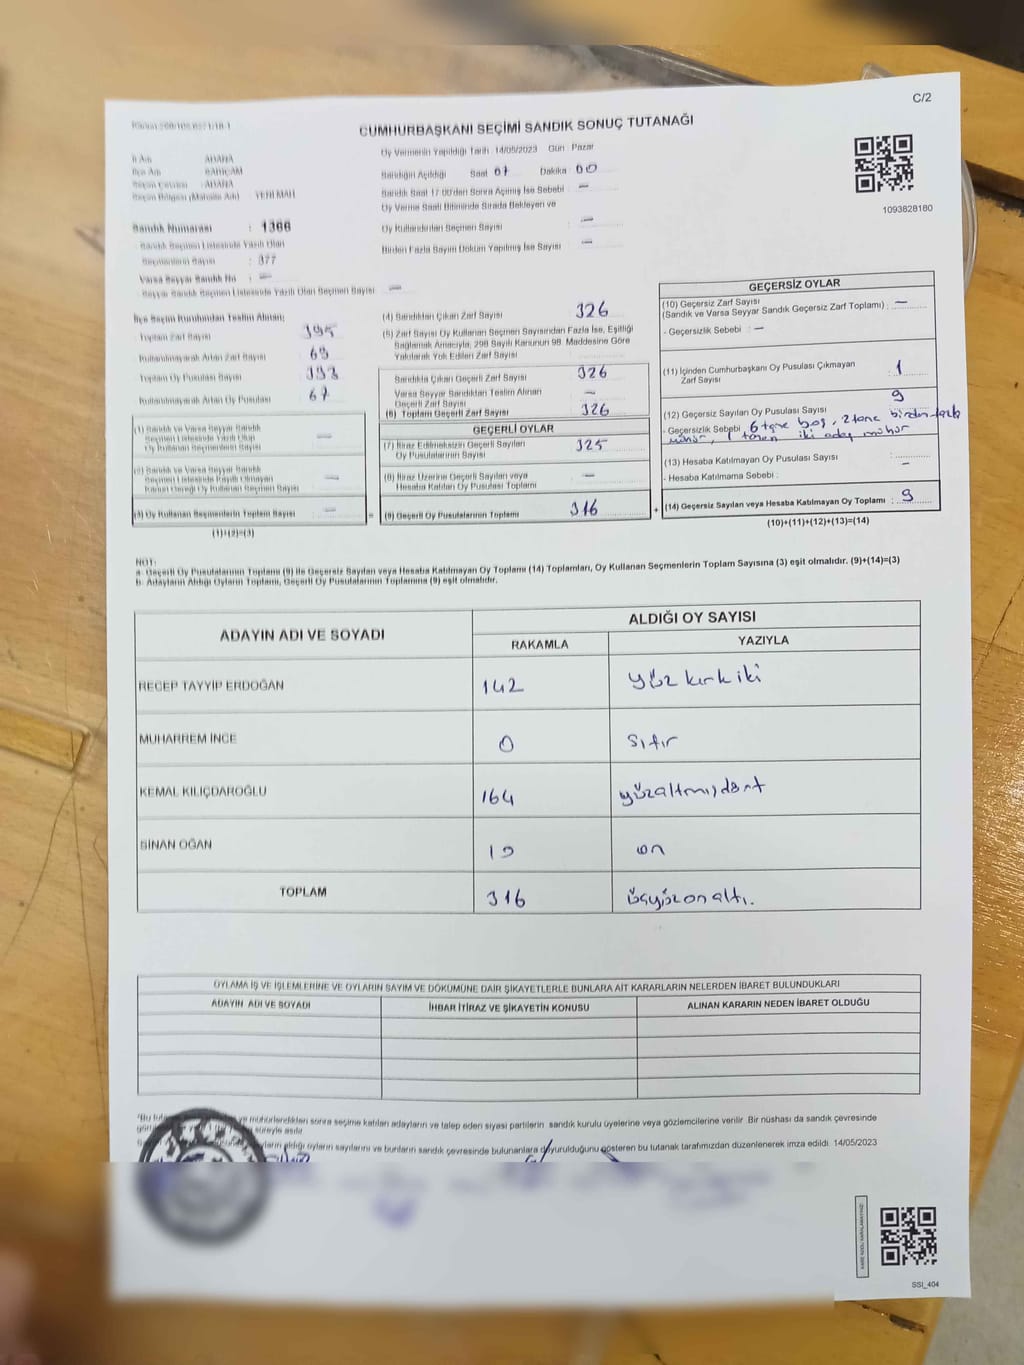 C/2
CUMHURBAŞKANI SEÇİMİ SANDIK SONUÇ TUTANAĞI
Oy Vermenin Yapıldığı Tarih : 14/05/2023 Gün : Pazar
İl Adı : ADANA
Sandığın Açıldığı Saat 07 Dakika 00
İlçe Adı
Seçim Çevresi : ADANA
Sandık Saat 17:00'den Sonra Açılmış İse Sebebi : —
Seçim Bölgesi (Mahalle Adı) : YENİ MAH.
Oy Verme Saati Bitiminde Sırada Bekleyen ve
Oy Kullandırılan Seçmen Sayısı : —
1093828180
Sandık Numarası : 1366
Birden Fazla Sayım Döküm Yapılmış İse Sayısı : —
Sandık Seçmen Listesinde Yazılı Olan
Seçmenlerin Sayısı : 377
Varsa Seyyar Sandık No : —
Seyyar Sandık Seçmen Listesinde Yazılı Olan Seçmen Sayısı : —
İlçe Seçim Kurulundan Teslim Alınan;
Toplam Zarf Sayısı : 395
Kullanılmayarak Artan Zarf Sayısı : 69
Toplam Oy Pusulası Sayısı : 393
Kullanılmayarak Artan Oy Pusulası : 67
(1) Sandık ve Varsa Seyyar Sandık
Seçmen Listesinde Yazılı Olup
Oy Kullanan Seçmenlerin Sayısı : —
(2) Sandık ve Varsa Seyyar Sandık
Seçmen Listesinde Kayıtlı Olmayan
Kanun Gereği Oy Kullanan Seçmen Sayısı : —
(3) Oy Kullanan Seçmenlerin Toplam Sayısı : —
(1)+(2)=(3)
(4) Sandıktan Çıkan Zarf Sayısı : 326
(5) Zarf Sayısı Oy Kullanan Seçmen Sayısından Fazla İse, Eşitliği
Sağlamak Amacıyla, 298 Sayılı Kanunun 98. Maddesine Göre
Yakılarak Yok Edilen Zarf Sayısı :
Sandıkta Çıkan Geçerli Zarf Sayısı : 326
Varsa Seyyar Sandıktan Teslim Alınan
Geçerli Zarf Sayısı : —
(6) Toplam Geçerli Zarf Sayısı : 326
GEÇERLİ OYLAR
(7) İtiraz Edilmeksizin Geçerli Sayılan
Oy Pusulalarının Sayısı : 325
(8) İtiraz Üzerine Geçerli Sayılan veya
Hesaba Katılan Oy Pusulası Toplamı : —
= (9) Geçerli Oy Pusulalarının Toplamı : 316
GEÇERSİZ OYLAR
(10) Geçersiz Zarf Sayısı
(Sandık ve Varsa Seyyar Sandık Geçersiz Zarf Toplamı) : —
- Geçersizlik Sebebi : —
(11) İçinden Cumhurbaşkanı Oy Pusulası Çıkmayan
Zarf Sayısı : 1
(12) Geçersiz Sayılan Oy Pusulası Sayısı : 9
- Geçersizlik Sebebi : 6 tane boş, 2 tane birden fazla
mühür, 1 iki adet mühür
(13) Hesaba Katılmayan Oy Pusulası Sayısı : —
- Hesaba Katılmama Sebebi :
+ (14) Geçersiz Sayılan veya Hesaba Katılmayan Oy Toplamı : 9
(10)+(11)+(12)+(13)=(14)
NOT:
a- Geçerli Oy Pusulalarının Toplamı (9) ile Geçersiz Sayılan veya Hesaba Katılmayan Oy Toplamı (14) Toplamları, Oy Kullanan Seçmenlerin Toplam Sayısına (3) eşit olmalıdır. (9)+(14)=(3)
b- Adayların Aldığı Oyların Toplamı, Geçerli Oy Pusulalarının Toplamına (9) eşit olmalıdır.
ADAYIN ADI VE SOYADI ALDIĞI OY SAYISI
RAKAMLA YAZIYLA
RECEP TAYYİP ERDOĞAN 142 yüz kırk iki
MUHARREM İNCE 0 sıfır
KEMAL KILIÇDAROĞLU 164 yüzaltmışdört
SİNAN OĞAN 10 on
TOPLAM 316 üçyüzonaltı.
OYLAMA İŞ VE İŞLEMLERİNE VE OYLARIN SAYIM VE DÖKÜMÜNE DAİR ŞİKAYETLERLE BUNLARA AİT KARARLARIN NELERDEN İBARET BULUNDUKLARI
ADAYIN ADI VE SOYADI İHBAR İTİRAZ VE ŞİKAYETİN KONUSU ALINAN KARARIN NEDEN İBARET OLDUĞU
mühürlendikten sonra seçime katılan adayların ve talep eden siyasi partilerin sandık kurulu üyelerine veya gözlemcilerine verilir. Bir nüshası da sandık çevresinde
süreyle asılır.
aldığı oyların sayılarını ve bunların sandık çevresinde bulunanlara duyurulduğunu gösteren bu tutanak tarafımızdan düzenlenerek imza edildi. 14/05/2023
SSI_404